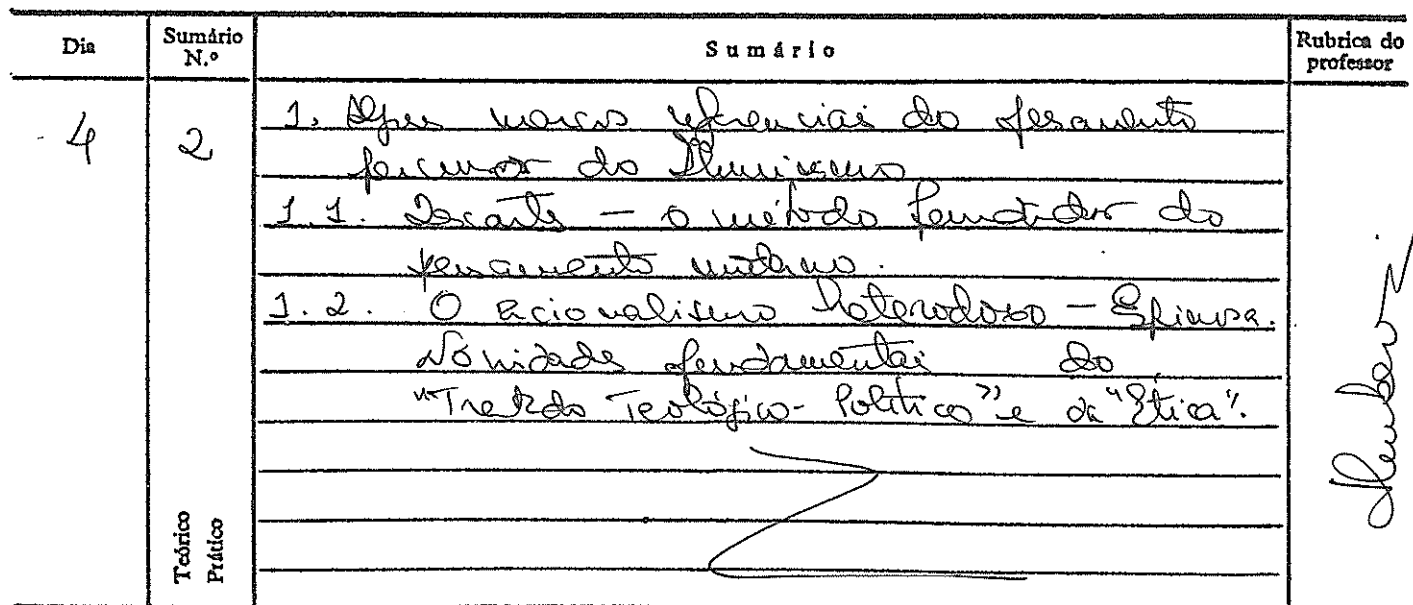 Dia
Sumário N.º
Sumário
Rubrica do professor
4
2
1. Alguns marcos referenciais do pensamento
percursor do Iluminismo
1.1. Descartes – o método fundador do
pensamento moderno.
1.2. O racionalismo heterodoxo – Espinosa.
Novidades fundamentais do
"Tratado Teológico-Político" e da "Ética".
Teórico
Prático